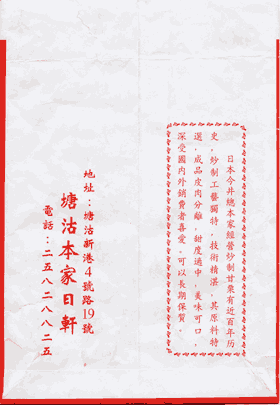 日本今井總本家經營炒制甘栗有近百年历
史，炒制工藝獨特，技術精湛，其原料特
選，成品皮肉分離，甜度適中，美味可口，
深受國内外銷費者喜爱。可以長期保質。
地址：塘沽新港4號路19號
塘沽本家日軒
電話：二五八二八八二五